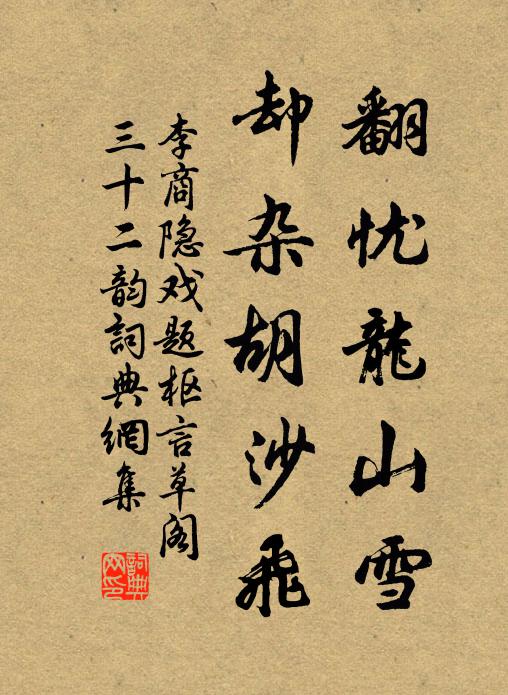 翻忧龍山雪
却杂胡沙飛
李商隐戏题枢言草阁
三十二韵詞典網集
詞典
网印